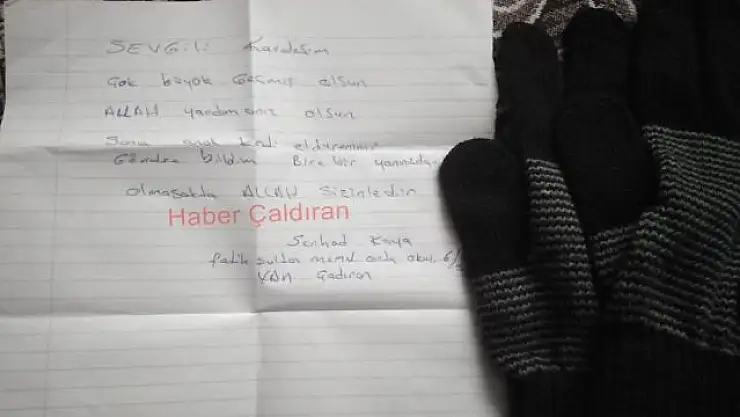 SEVGili Kardeşim
Çok büyok Geçmiş olsun
ALLAH yardımcınız olsun
Sana anak kendi eldivenimi
Göndre bildim Bire bir yanınızda
olmasakta ALLAH sizinledir
Haber Çaldıran
Serhad Kaya
fatih sultan memet orta okul 6/
VAN Çadıran